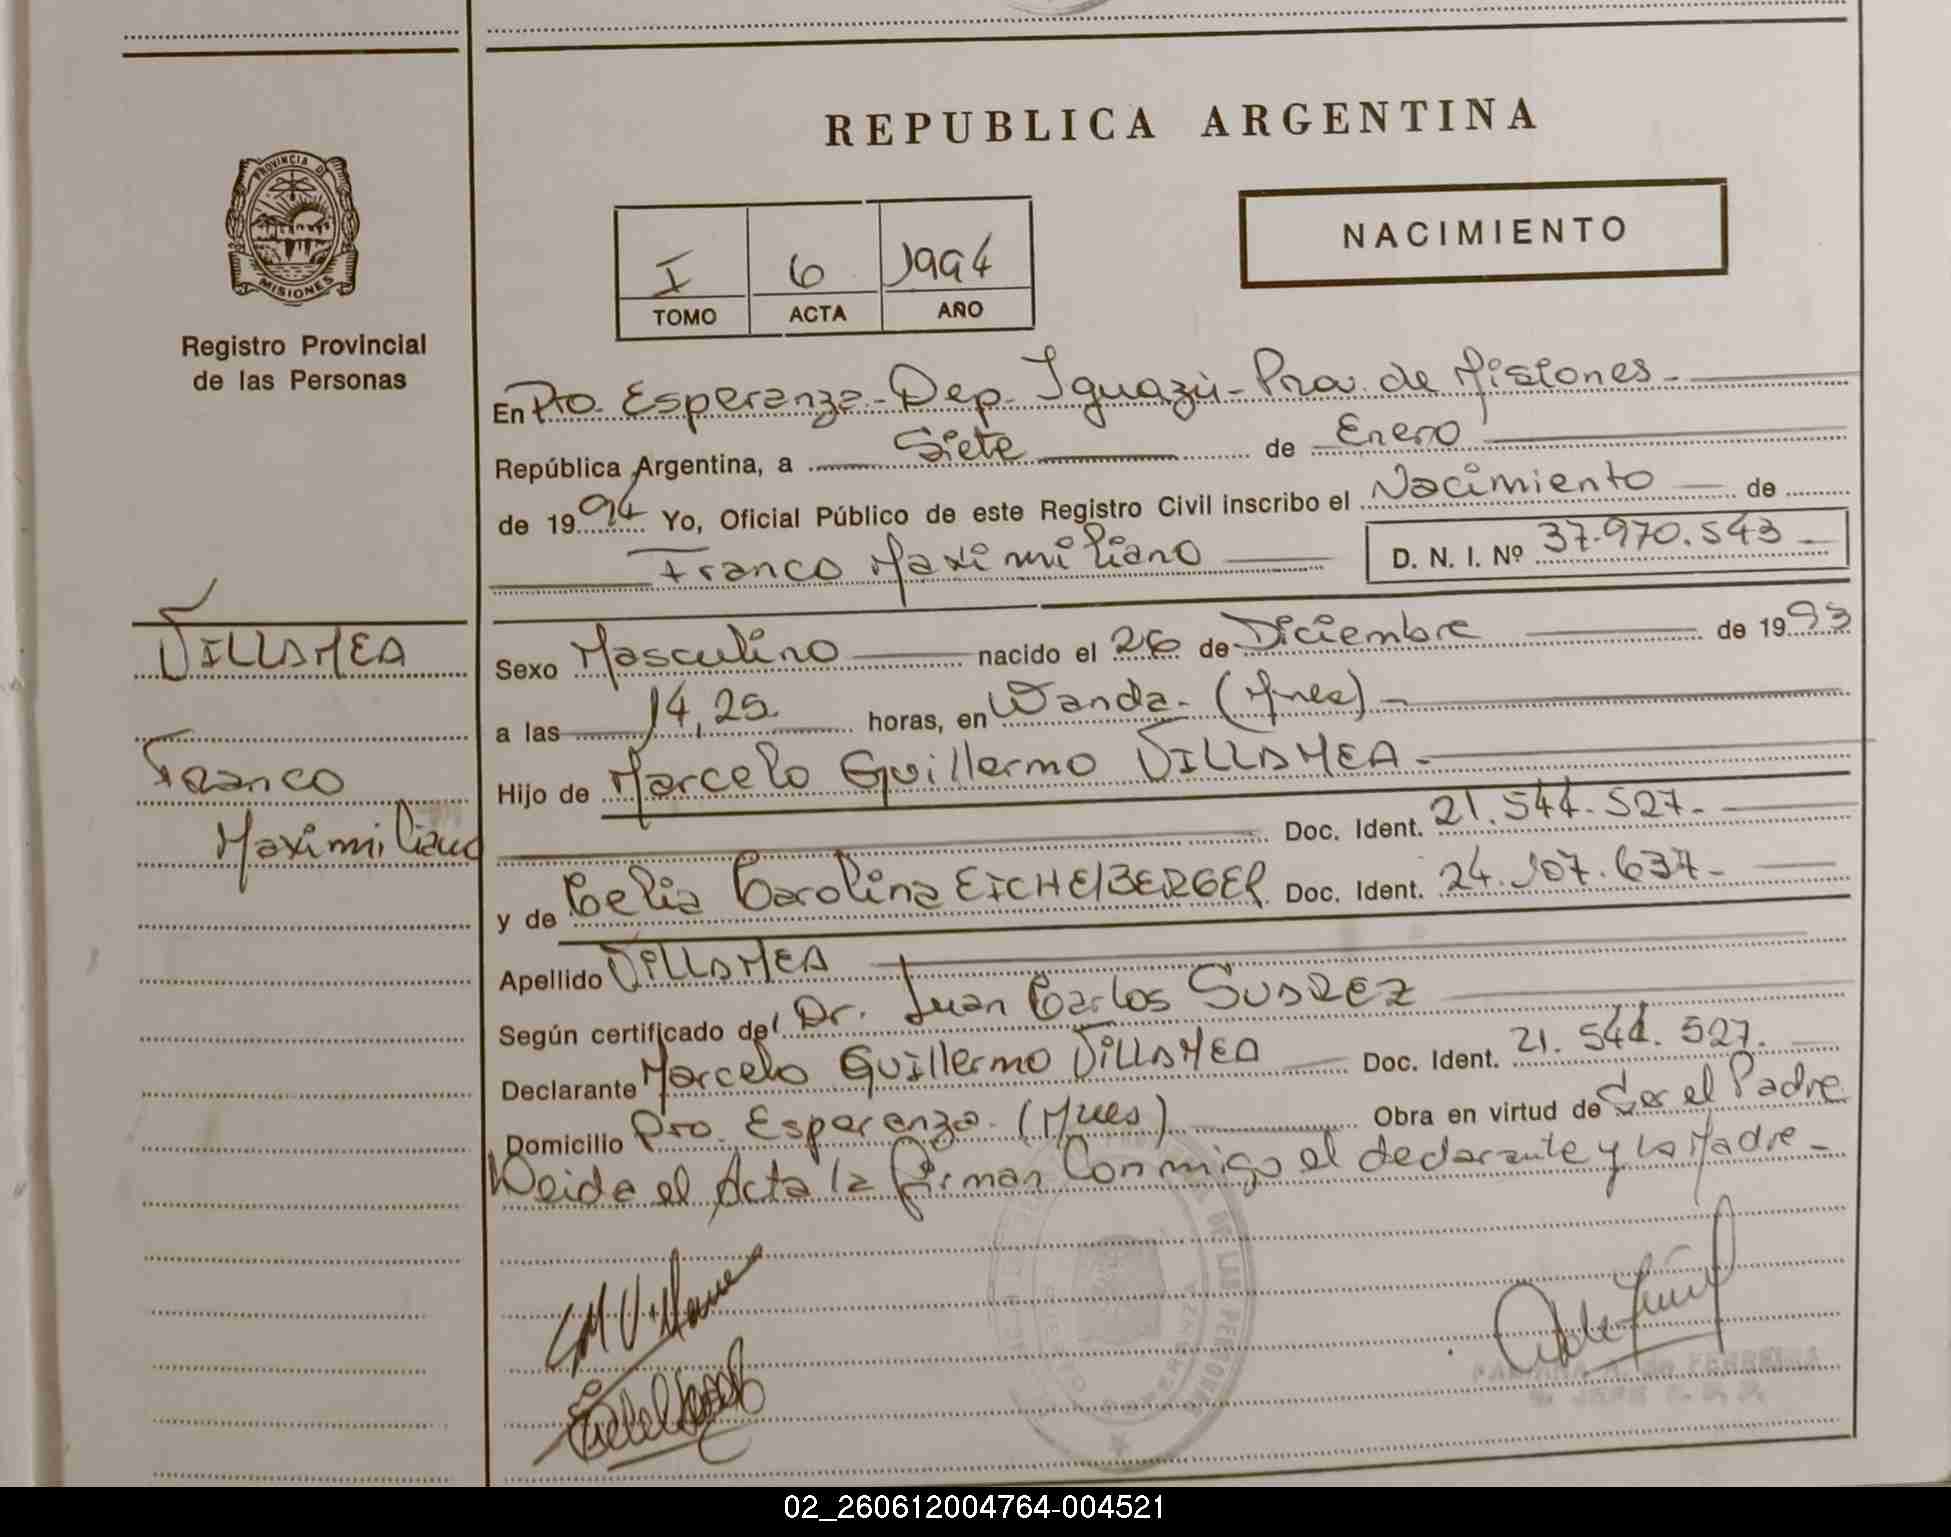 REPUBLICA ARGENTINA
PROVINCIA DE MISIONES
Registro Provincial
de las Personas
I 6 1994
TOMO ACTA AÑO
NACIMIENTO
En Pto. Esperanza - Dep. Iguazú - Prov. de Misiones -
República Argentina, a Siete de Enero
de 1994 Yo, Oficial Público de este Registro Civil inscribo el Nacimiento de
Franco Maximiliano D. N. I. Nº 37.970.543
VILLAMEA
Franco
Maximiliano
Sexo Masculino nacido el 26 de Diciembre de 1993
a las 14,25 horas, en Wanda - (Mnes) -
Hijo de Marcelo Guillermo VILLAMEA -
Doc. Ident. 21.544.527 -
y de Celia Carolina EICHELBERGER Doc. Ident. 24.107.637 -
Apellido VILLAMEA
Según certificado del Dr. Juan Carlos SUAREZ
Declarante Marcelo Guillermo VILLAMEA Doc. Ident. 21.544.527.
Domicilio Pto. Esperanza - (Mnes) Obra en virtud de Ser el Padre
Leida el Acta la firman Conmigo el declarante y la Madre -
DE LAS PERSONAS
02_260612004764-004521